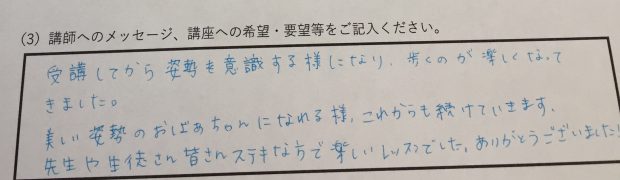 (3) 講師へのメッセージ、講座への希望・要望等をご記入ください。
受講してから姿勢を意識する様になり、歩くのが楽しくなって
きました。
美しい姿勢のおばあちゃんになれる様、これからも続けていきます。
先生や生徒さん皆さんステキな方で楽しいレッスンでした。ありがとうございました!